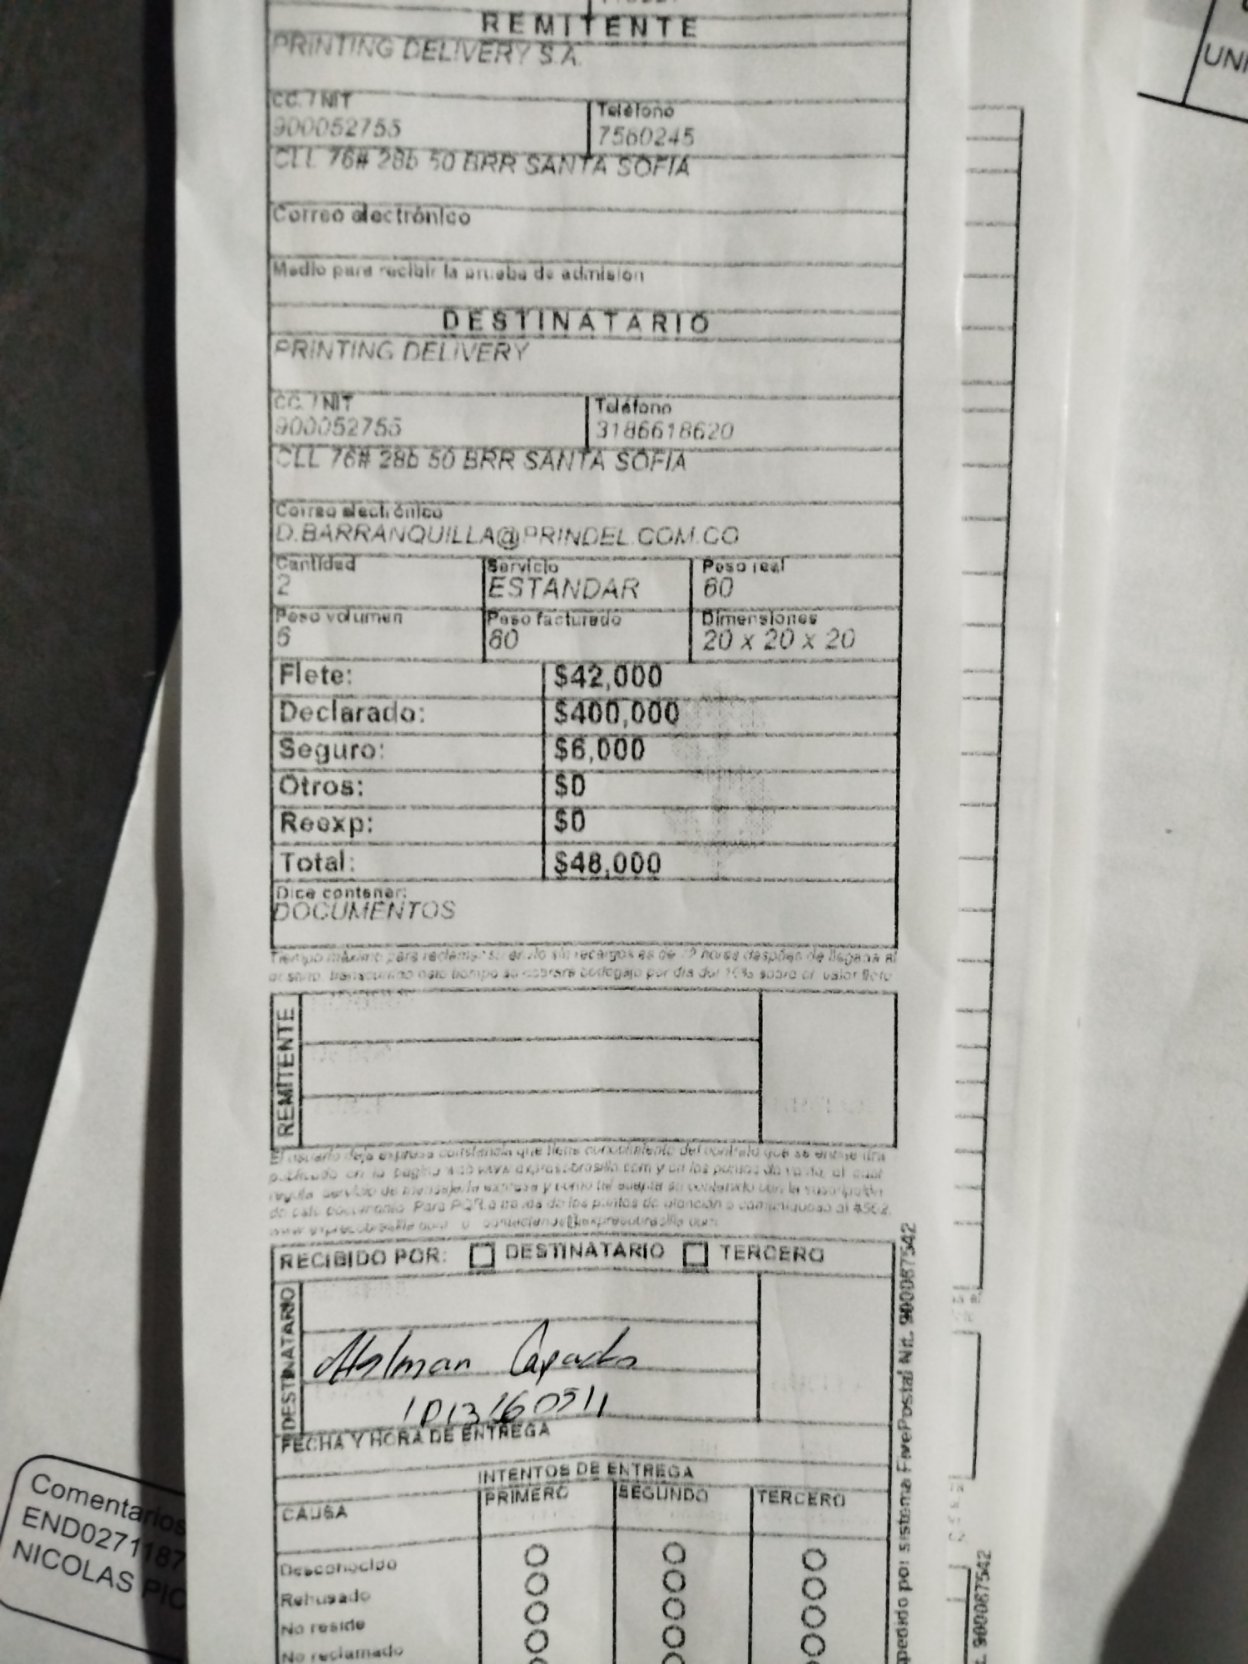 REMITENTE
PRINTING DELIVERY S.A.
CC. / NIT
900052755
Teléfono
7560245
CLL 76# 28b 50 BRR SANTA SOFIA
Correo electrónico
Medio para recibir la prueba de admision
DESTINATARIO
PRINTING DELIVERY
CC. / NIT
900052755
Teléfono
3186618620
CLL 76# 28b 50 BRR SANTA SOFIA
Correo electrónico
D.BARRANQUILLA@PRINDEL.COM.CO
Cantidad Servicio Peso real
2 ESTANDAR 60
Peso volumen Peso facturado Dimensiones
6 60 20 x 20 x 20
Flete: $42,000
Declarado: $400,000
Seguro: $6,000
Otros: $0
Reexp: $0
Total: $48,000
Dice contener:
DOCUMENTOS
Tiempo máximo para reclamar su envío sin recargos es de 72 horas despúes de llegada al
destino, transcurrido este tiempo se cobrará bodegaje por día del 10% sobre el valor flete
REMITENTE
El usuario deja expresa constancia que tiene conocimiento del contrato que se encuentra
publicado en la pagina web www.expresobrasilia.com y en los puntos de venta, el cual
regula servicio de mensajería expresa y como tal acepta su contenido con la suscripción
de este documento. Para PQR a través de los puntos de atención o comuníquese al #502,
RECIBIDO POR: DESTINATARIO TERCERO
DESTINATARIO
Capacho
FECHA Y HORA DE ENTREGA
INTENTOS DE ENTREGA
CAUSA PRIMERO SEGUNDO TERCERO
Desconocido
Rehusado
No reside
No reclamado
pedido por sistema FivePostal Nit. 900087542
t. 900087542
Comentarios
END0271187
NICOLAS PIC
UNI